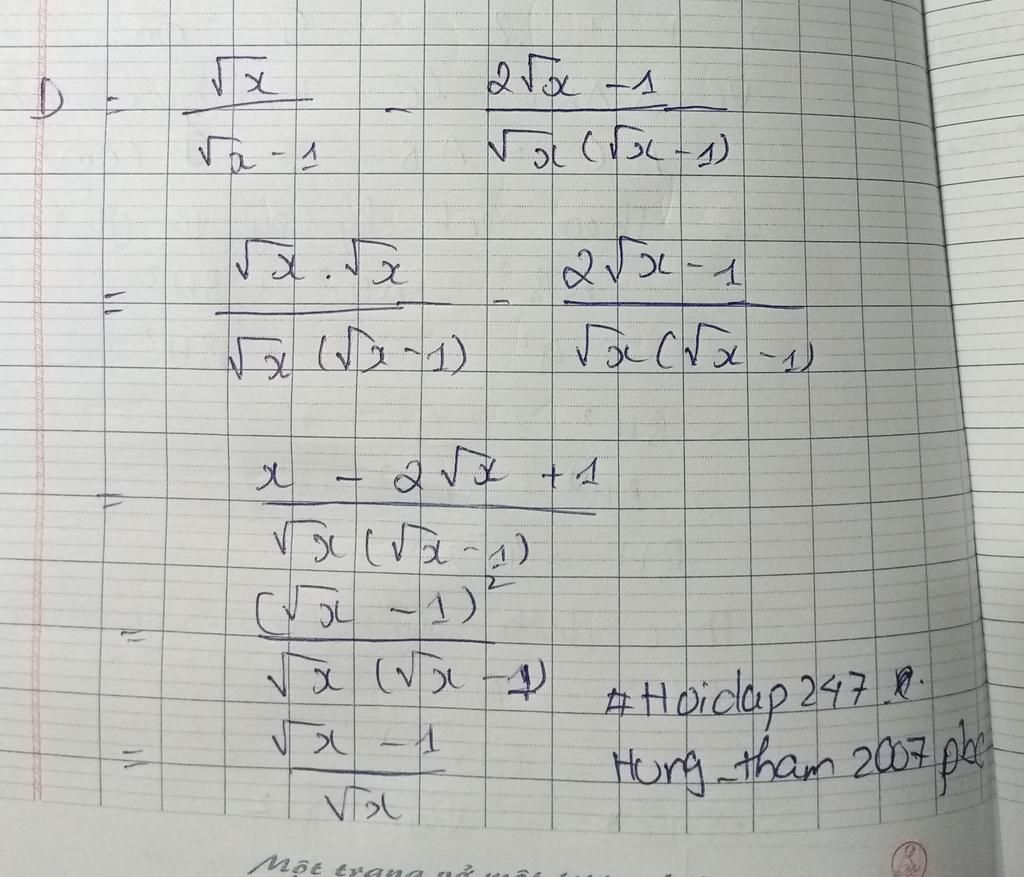 D = √x / (√x - 1) - (2√x - 1) / (√x (√x - 1))
= (√x . √x) / (√x (√x - 1)) - (2√x - 1) / (√x (√x - 1))
= (x - 2√x + 1) / (√x (√x - 1))
= (√x - 1)² / (√x (√x - 1))
= (√x - 1) / √x
#Hoidap247
Hung_tham 2007 pbc
Một trang vở một